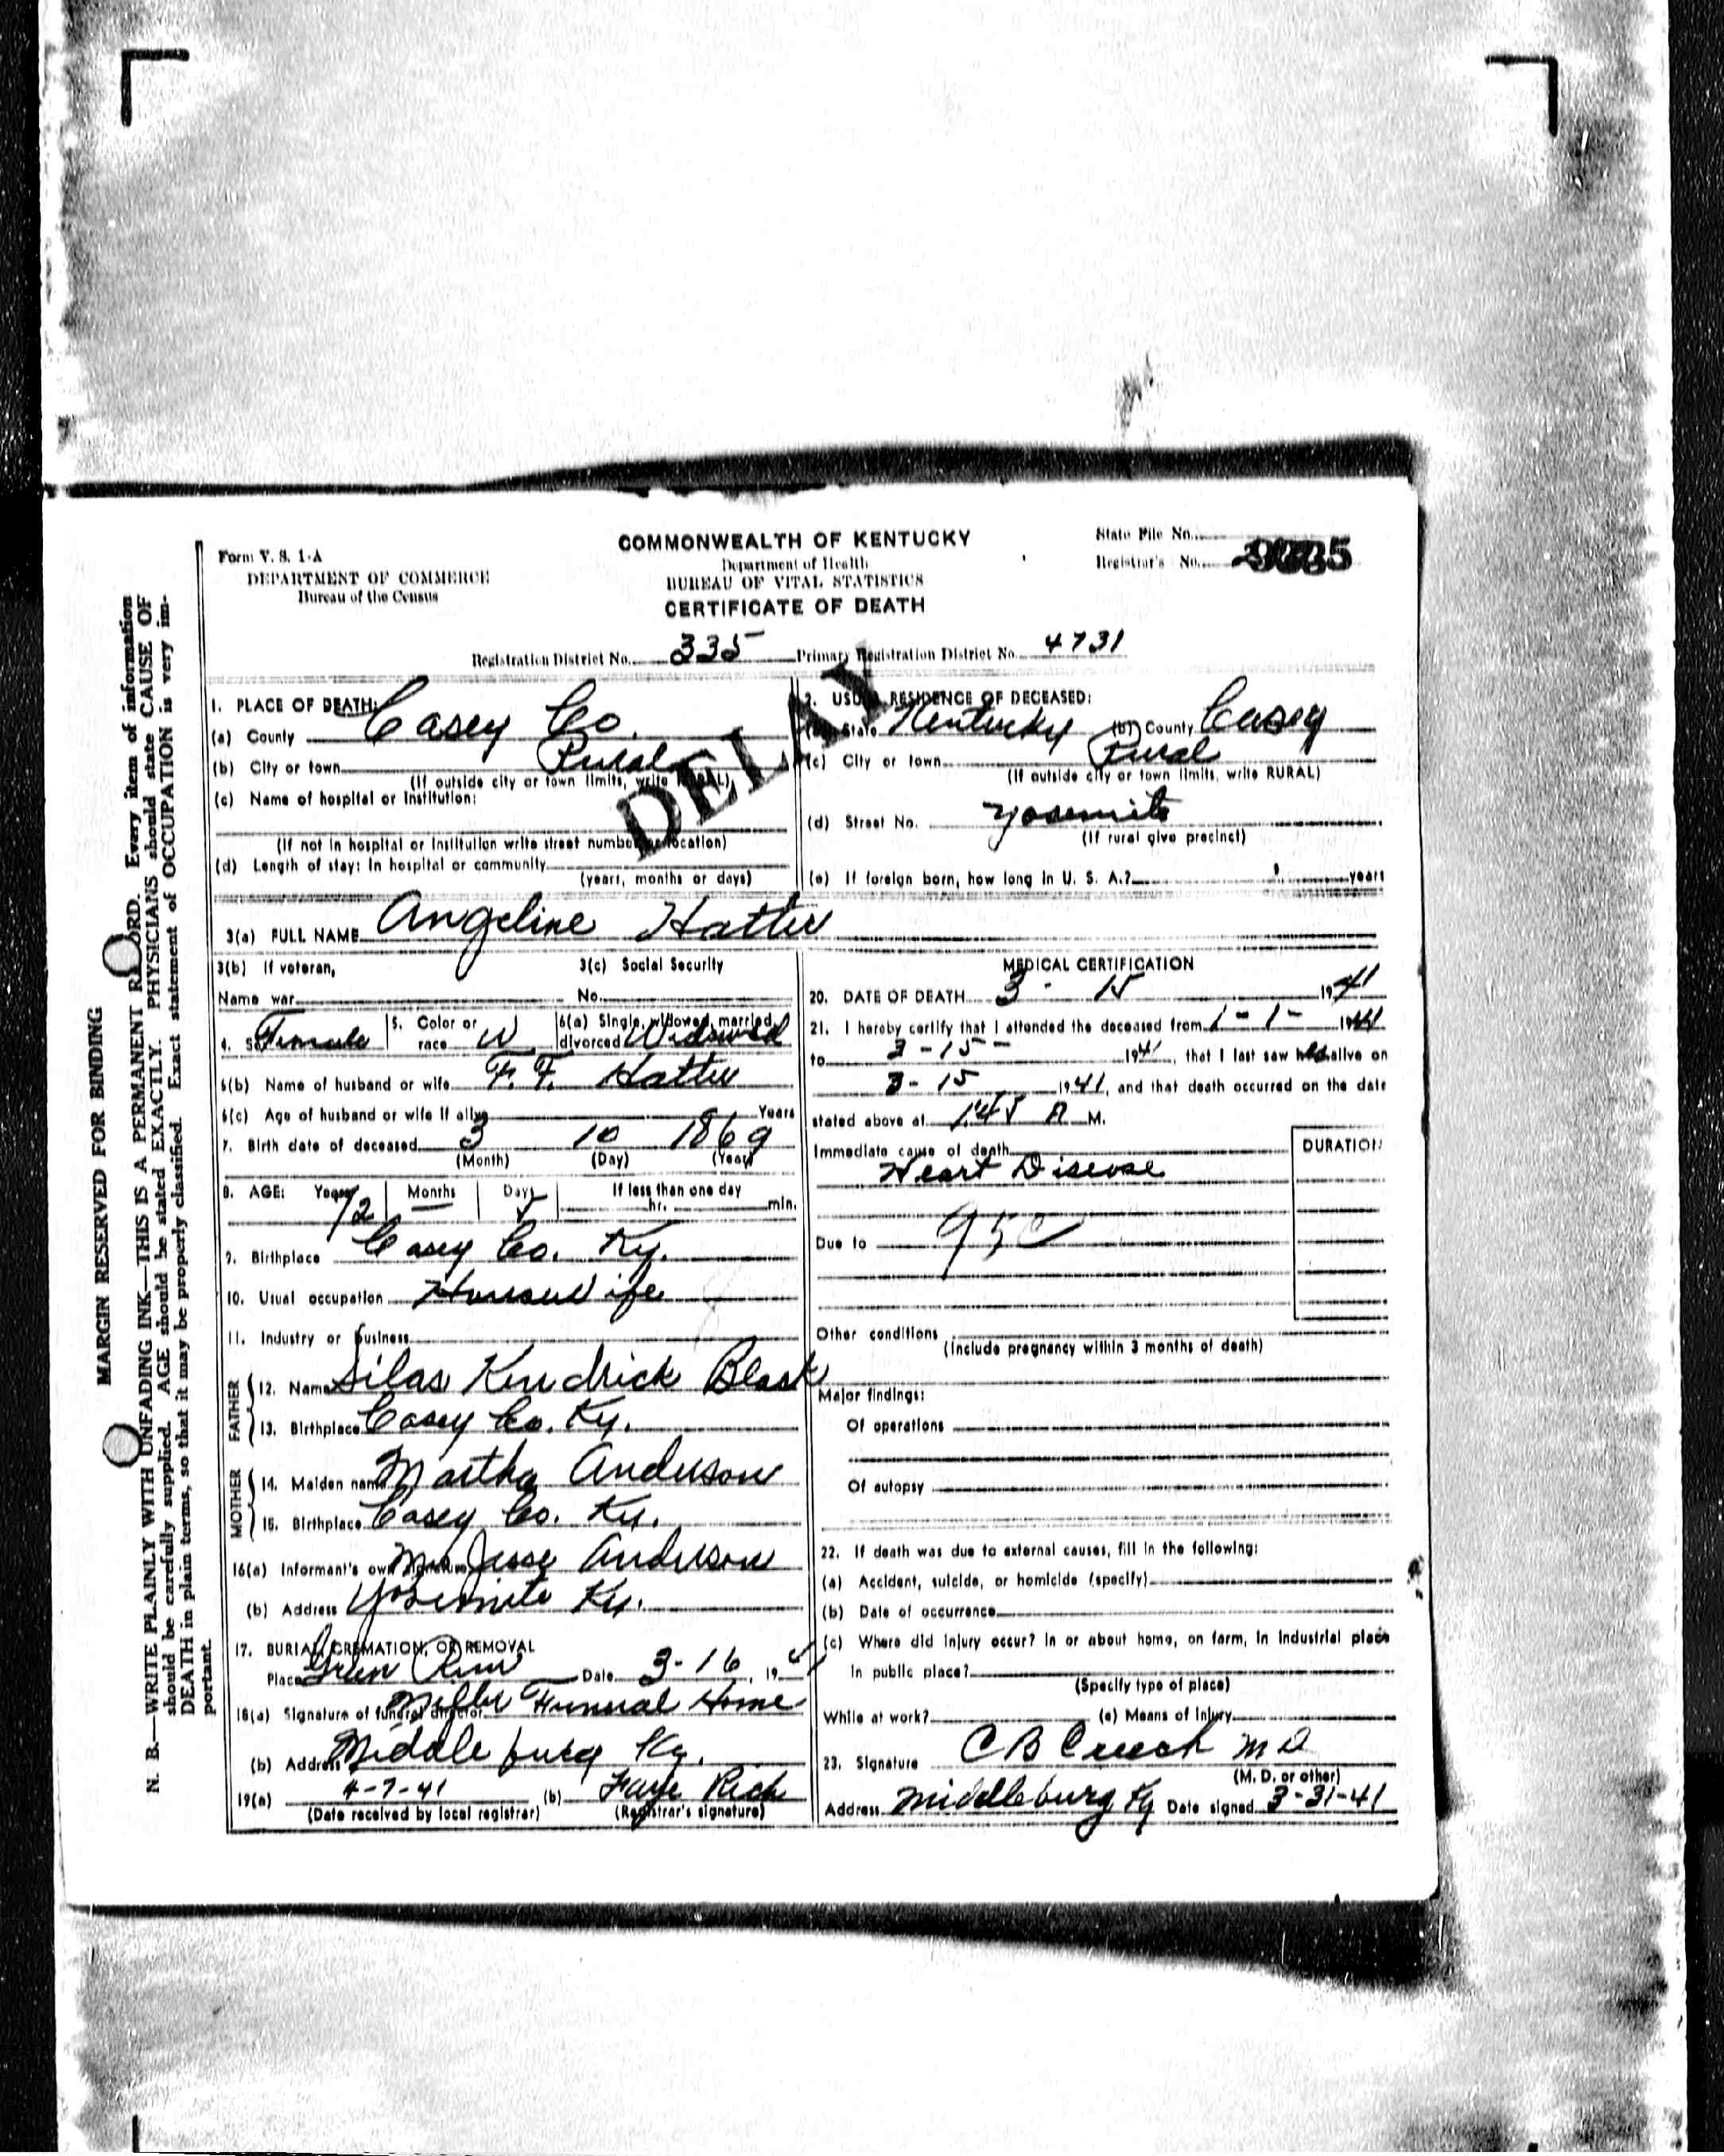 MARGIN RESERVED FOR BINDING
N. B.—WRITE PLAINLY WITH UNFADING INK—THIS IS A PERMANENT RECORD. Every item of information
should be carefully supplied. AGE should be stated EXACTLY. PHYSICIANS should state CAUSE OF
DEATH in plain terms, so that it may be properly classified. Exact statement of OCCUPATION is very im-
portant.
Form V. S. 1-A
DEPARTMENT OF COMMERCE
Bureau of the Census
COMMONWEALTH OF KENTUCKY
Department of Health
BUREAU OF VITAL STATISTICS
CERTIFICATE OF DEATH
State File No.
Registrar's No.
Registration District No. 335 Primary Registration District No. 4731
DELAY
1. PLACE OF DEATH:
(a) County Casey Co.
(b) City or town Rural
(If outside city or town limits, write RURAL)
(c) Name of hospital or institution:
(If not in hospital or institution write street number or location)
(d) Length of stay: In hospital or community
(years, months or days)
2. USUAL RESIDENCE OF DECEASED:
(a) State Kentucky (b) County Casey
(c) City or town Rural
(If outside city or town limits, write RURAL)
(d) Street No. Yosemite
(If rural give precinct)
(e) If foreign born, how long in U. S. A.? years
3(a) FULL NAME Angeline Hatter
3(b) If veteran,
Name war
3(c) Social Security
No.
4. Sex Female 5. Color or race W 6(a) Single, widowed, married, divorced Widowed
6(b) Name of husband or wife F. F. Hatter
6(c) Age of husband or wife if alive Years
7. Birth date of deceased 3 10 1869
(Month) (Day) (Year)
8. AGE: Years 72 Months — Days 5 If less than one day
hr. min.
9. Birthplace Casey Co. Ky.
10. Usual occupation Housewife
11. Industry or business
FATHER
12. Name Silas Kendrick Black
13. Birthplace Casey Co. Ky.
MOTHER
14. Maiden name Martha Anderson
15. Birthplace Casey Co. Ky.
16(a) Informant's own signature Mrs Jesse Anderson
(b) Address Yosemite Ky.
17. BURIAL, CREMATION, OR REMOVAL
Place Green River Date 3-16, 1941
18(a) Signature of funeral director Miller Funeral Home
(b) Address Middleburg Ky.
19(a) 4-7-41 (b) Faye Rich
(Date received by local registrar) (Registrar's signature)
MEDICAL CERTIFICATION
20. DATE OF DEATH 3 - 15 1941
21. I hereby certify that I attended the deceased from 1-1- 1941
to 3-15- 1941, that I last saw her alive on
3-15 1941, and that death occurred on the date
stated above at 1:45 A M.
Immediate cause of death
Heart Disease
DURATION
Due to 95c
Other conditions
(Include pregnancy within 3 months of death)
Major findings:
Of operations
Of autopsy
22. If death was due to external causes, fill in the following:
(a) Accident, suicide, or homicide (specify)
(b) Date of occurrence
(c) Where did injury occur? In or about home, on farm, in industrial place
In public place?
(Specify type of place)
While at work? (e) Means of Injury
23. Signature C B Creech M D
(M. D. or other)
Address Middleburg Ky Date signed 3-31-41